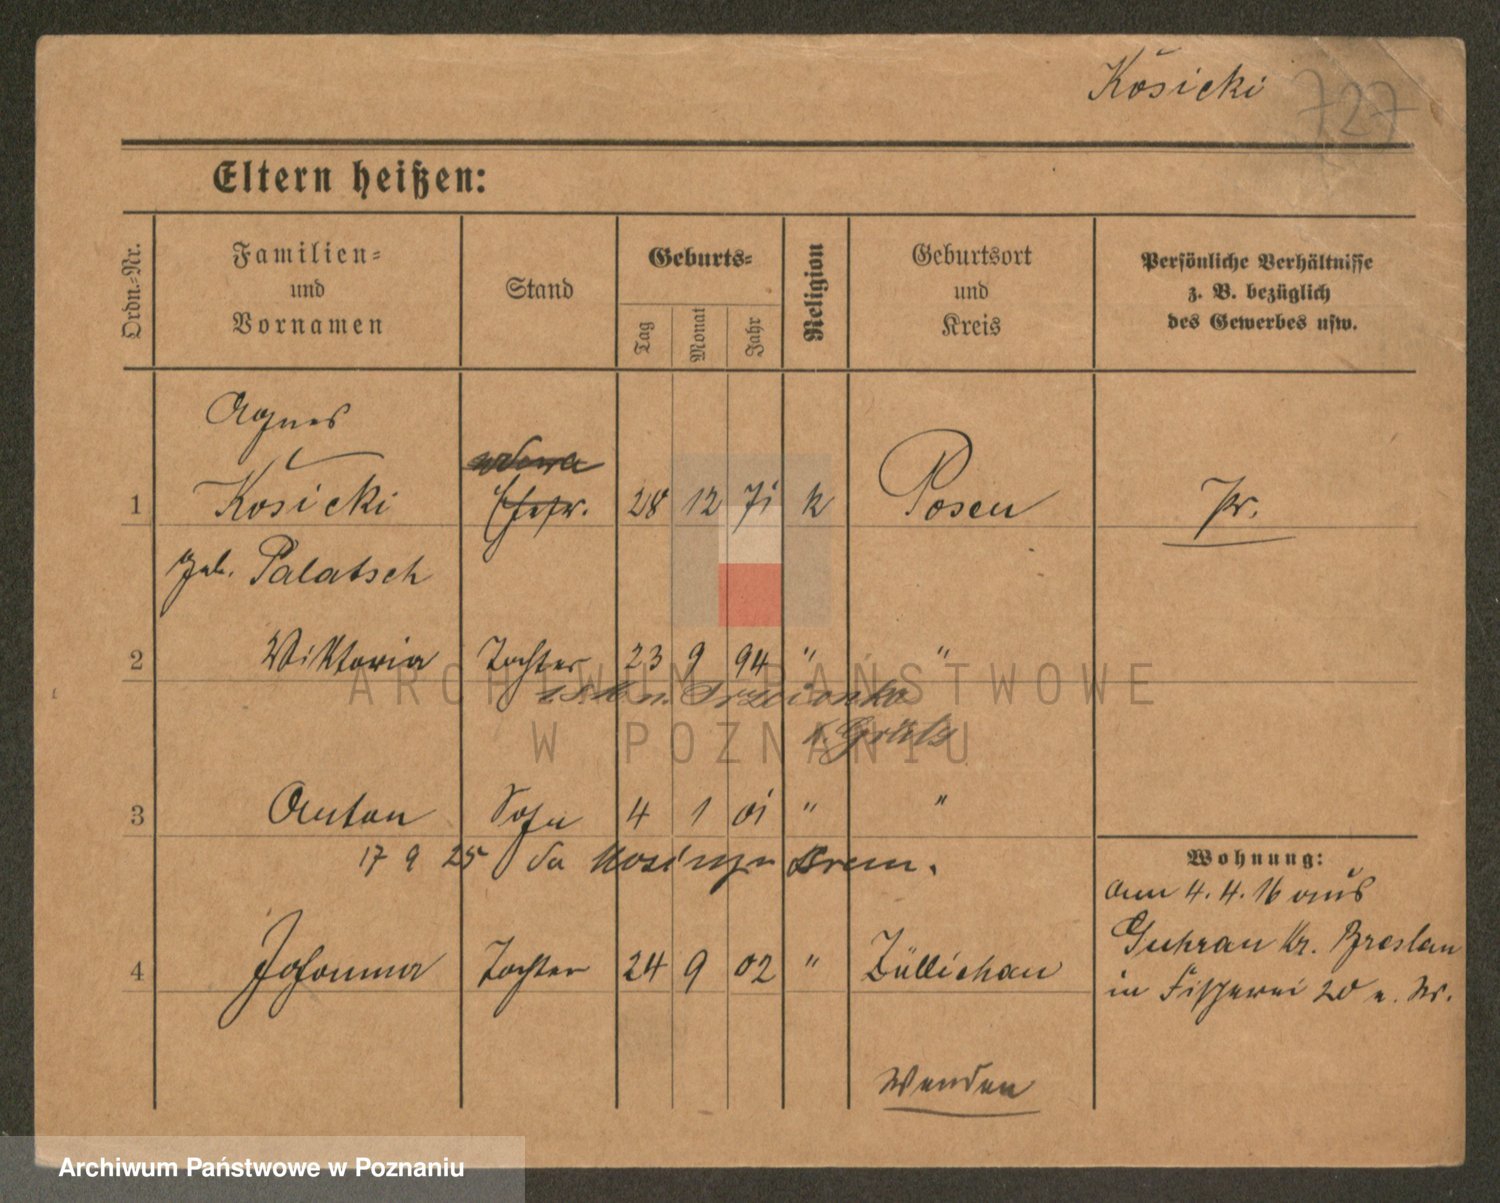 Kósicki 727
Eltern heißen:
Ordn.-Nr.
Familien-
und
Vornamen
Stand
Geburts-
Tag
Monat
Jahr
Religion
Geburtsort
und
Kreis
Persönliche Verhältnisse
z. B. bezüglich
des Gewerbes usw.
Agnes
1 Kosicki Ehefr. 28 12 71 k Posen Pr.
geb. Palatsch
2 Viktoria Tochter 23 9 94 " "
ARCHIWUM PAŃSTWOWE
n. Trzcionka
W POZNANIU
k. Grätz
3 Anton Sohn 4 1 01 " "
17 9 25 Schrem.
Wohnung:
am 4. 4. 16 aus
Guhrau Kr. Breslau
4 Johanna Tochter 24 9 02 " Züllichau
in Fischerei 20 b. Nr.
Wenden
Archiwum Państwowe w Poznaniu